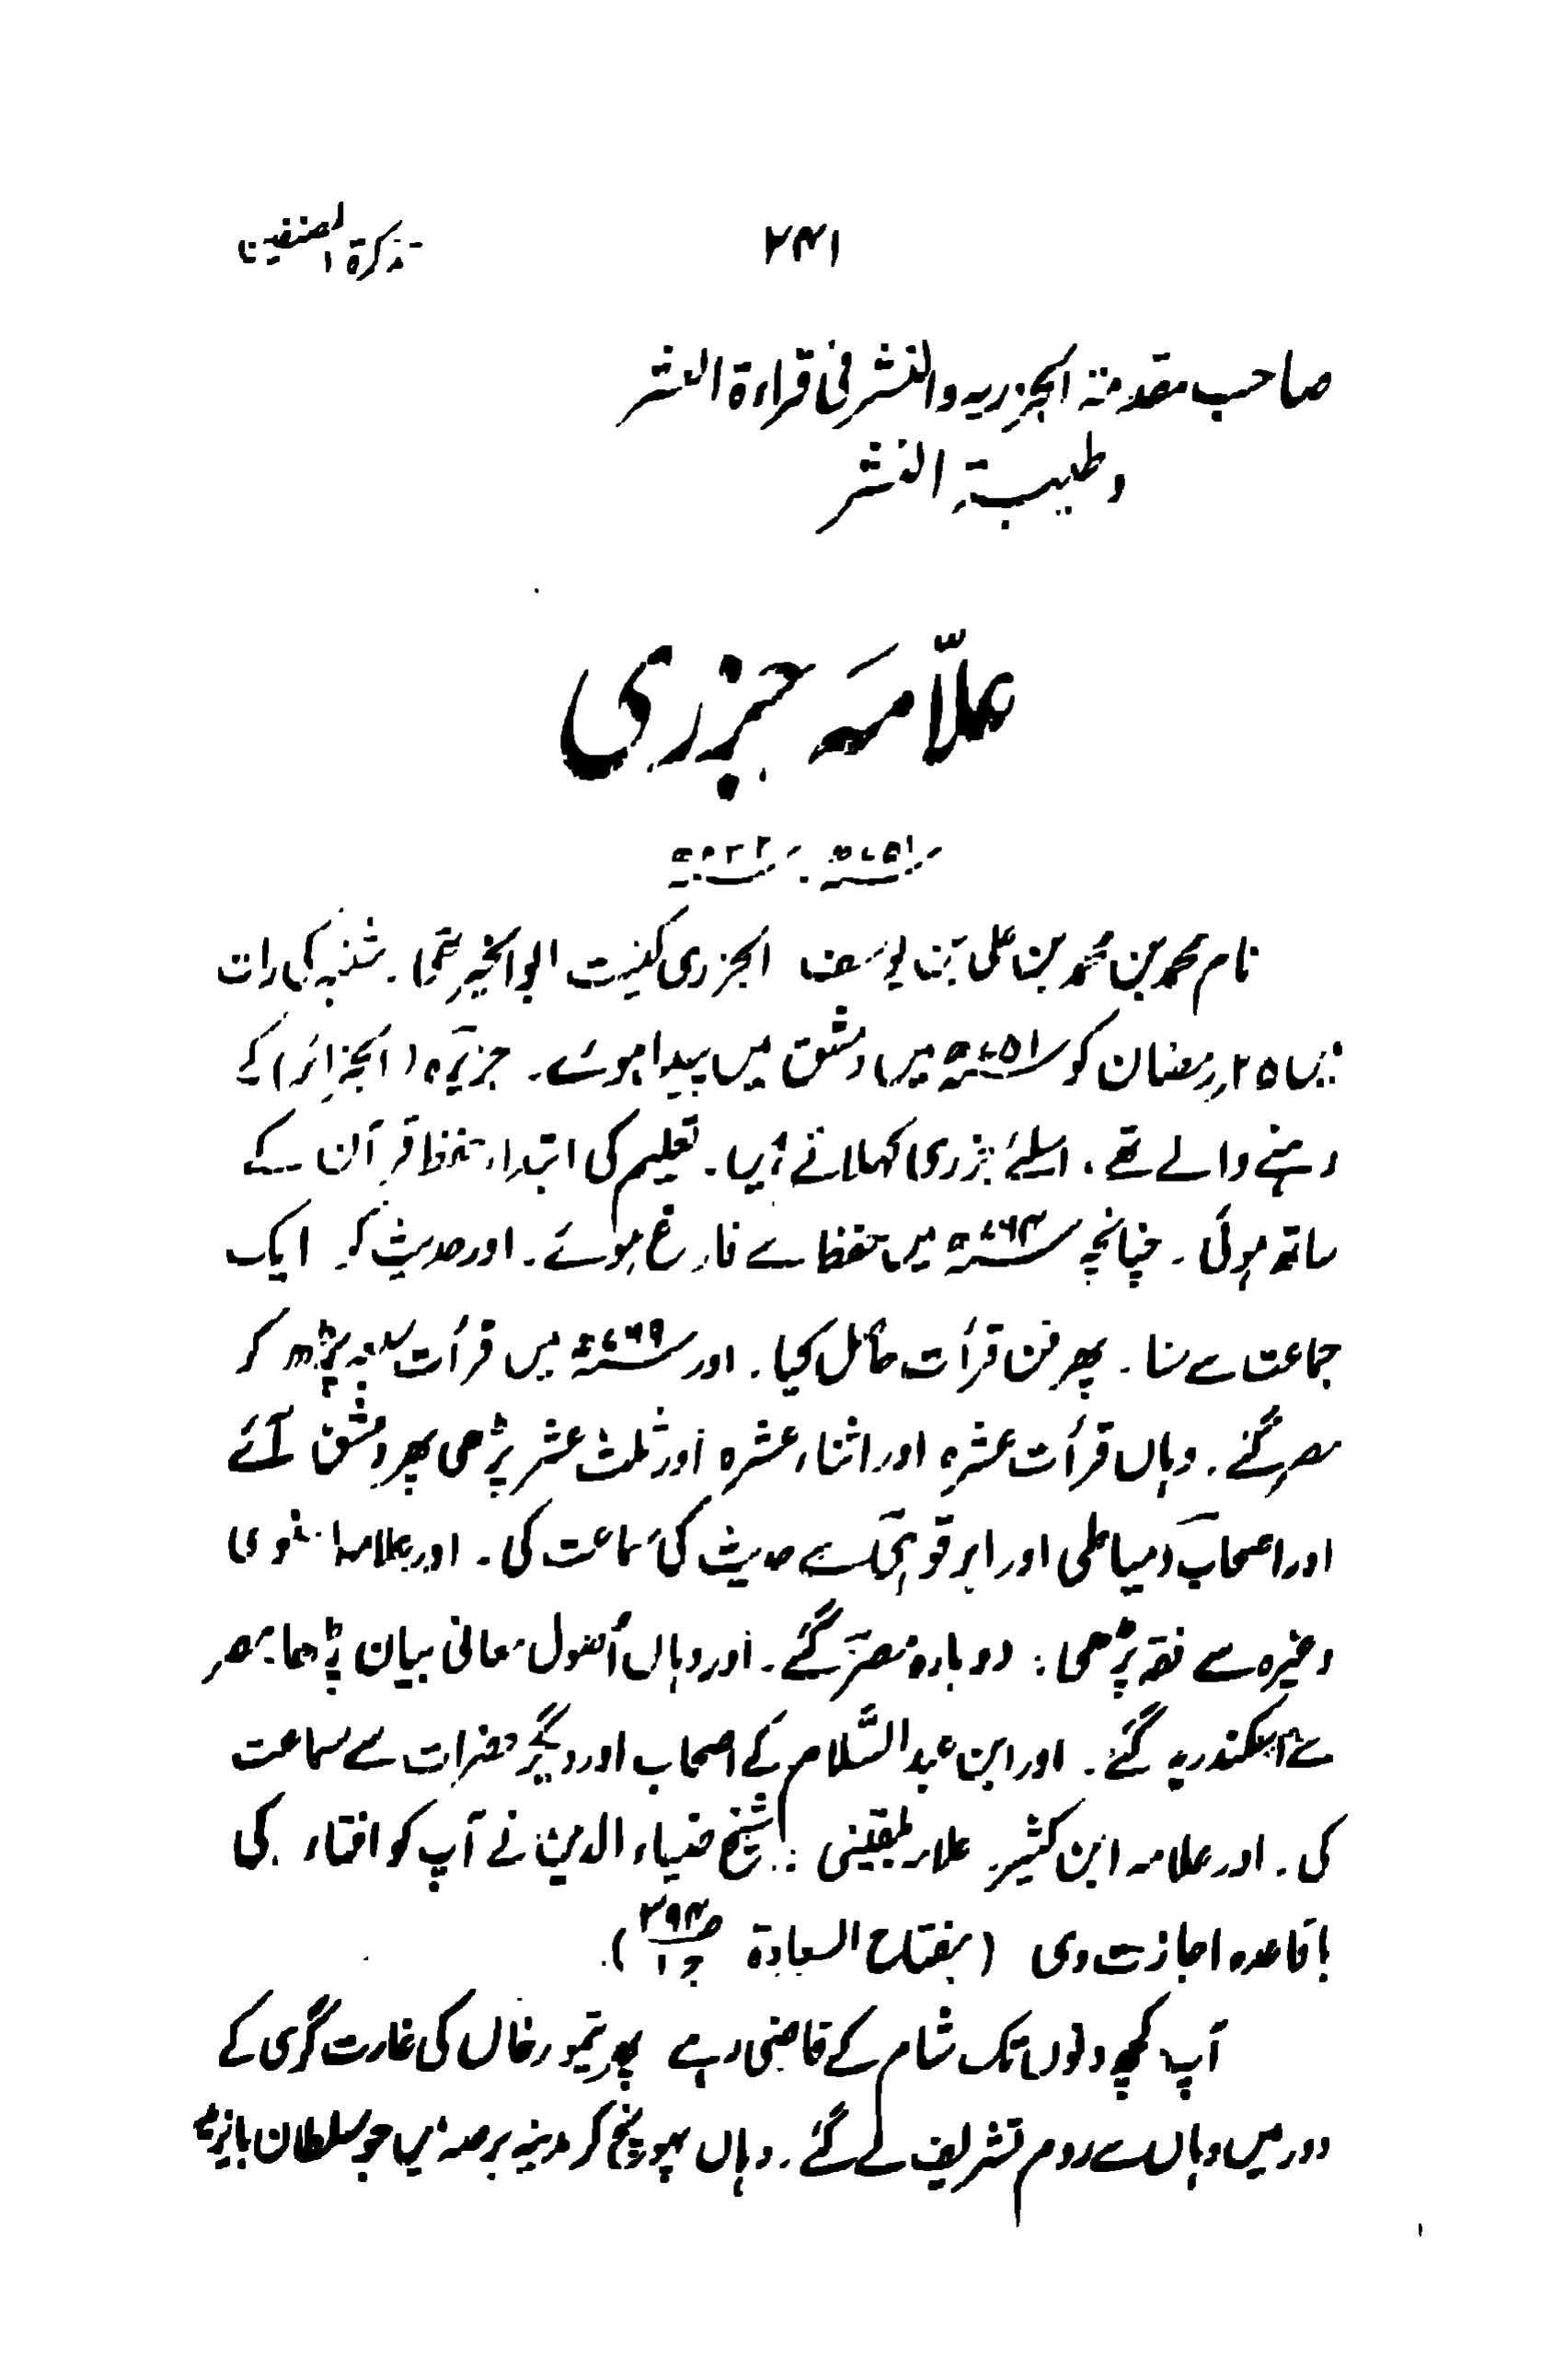 ۲۴۱ تذکرة المصنفین
صاحب مقدمۃ الجزریہ والنشر فی قراءۃ النشر
وطیبۃ النشر
علاّمہ جزری
۷۵۱ھ
نام محمد بن محمد بن علی بن یوسف الجزری کنیت ابوالخیر تھی۔ شنبہ کی رات
میں ۲۵ر رمضان کو ۷۵۱ھ میں دمشق میں پیدا ہوئے۔ جزیرہ (الجزائر) کے
رہنے والے تھے، اسلئے جزری کہلاتے ہیں۔ تعلیم کی ابتداء حفظ قرآن کے
ساتھ ہوئی۔ چنانچہ ۷۶۴ھ میں حفظ سے فارغ ہوئے۔ اور حدیث کو ایک
جماعت سے سنا۔ پھر فن قرأت حاصل کیا۔ اور ۷۶۹ھ میں قرأت سبعہ پڑھ کر
مصر گئے۔ وہاں قرأت عشرہ اور اثناء عشرہ اور ثلث عشر پڑھی پھر دمشق آئے
اور اصحاب دمیاطی اور ابرقوہی سے حدیث کی سماعت کی۔ اور علامہ اسنوی
وغیرہ سے فقہ پڑھی؛ دوبارہ مصر گئے۔ اور وہاں اُصول معانی بیان پڑھا؛ مصر
سے اسکندریہ گئے۔ اور ابن عبدالسَّلام کے اصحاب اور دیگر حضرات سے سماعت
کی۔ اور علامہ ابن کثیر علامہ بلقینی شیخ ضیاء الدین نے آپ کو افتاء کی
باقاعدہ اجازت دی (مفتاح السعادۃ ص۳۹۴ ج۱)۔
آپ کچھ دنوں تک شام کے قاضی رہے پھر تیمور خاں کی غارت گری کے
دور میں وہاں سے روم تشریف لے گئے۔ وہاں پہونچ کر مدینہ برصہ میں جو سلطان بایزید